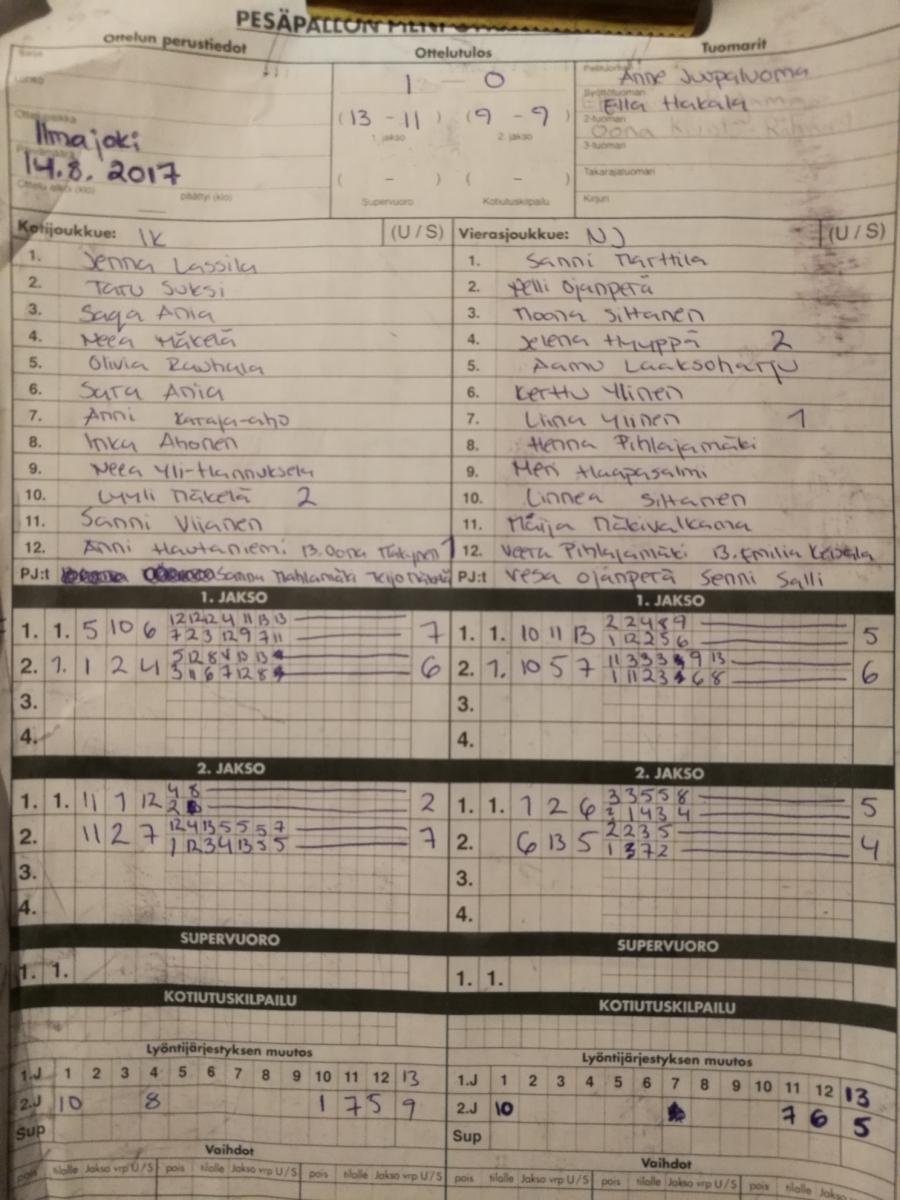 PESÄPALLON
Ottelun perustiedot
Ottelutulos
Tuomarit
1 0
(13 - 11) (9 - 9)
1. jakso 2. jakso
( - ) ( - )
Supervuoro Kotiutuskilpailu
Ilmajoki
14.8. 2017
päättyi (klo)
Anne Juopaluoma
Ella Hakala
2-tuomari
Oona
3-tuomari
Takarajatuomari
Kirjuri
Kotijoukkue: IK (U / S)
1. Jenna Lassila
2. Taru Suksi
3. Saga Ania
4. Neea Mäkelä
5. Olivia Rauhala
6. Sara Ania
7. Anni Karaja-aho
8. Inka Ahonen
9. Neea Yli-Hannuksela
10. Lyyli Mäkelä 2
11. Sanni Viianen
12. Anni Hautaniemi 13. Oona 1
PJ:t Sannu Mahlamäki
Vierasjoukkue: NJ (U / S)
1. Sanni Marttila
2. Pelli Ojanperä
3. Noona Siltanen
4. Jelena Hyyppä 2
5. Aamu Laaksoharju
6. Kerttu Ylinen
7. Liina Ylinen 1
8. Henna Pihlajamäki
9. Meri Haapasalmi
10. Linnea Siltanen
11. Maija Mäkivalkama
12. Veera Pihlajamäki 13. Emilia
PJ:t Vesa Ojanperä Senni Salli
1. JAKSO
1. 1. 5 10 6 7
2. 1. 1 2 4 6
3.
4.
1. JAKSO
1. 1. 10 11 13 2 2 4 8 9 5
1 12 2 5 6
2. 1. 10 5 7 6
3.
4.
2. JAKSO
1. 1. 11 1 12 4 8 2
2
2. 11 2 7 12 4 13 5 5 5 7 7
1 12 3 4 13 5 5
3.
4.
2. JAKSO
1. 1. 1 2 6 3 3 5 5 8 5
1 4 3 4
2. 6 13 5 2 2 3 5 4
1 3 7 2
3.
4.
SUPERVUORO
1. 1.
SUPERVUORO
1. 1.
KOTIUTUSKILPAILU
KOTIUTUSKILPAILU
Lyöntijärjestyksen muutos
1.J 1 2 3 4 5 6 7 8 9 10 11 12 13
2.J 10 8 1 7 5 9
Sup
Lyöntijärjestyksen muutos
1.J 1 2 3 4 5 6 7 8 9 10 11 12 13
2.J 10 7 6 5
Sup
Vaihdot
pois tilalle Jakso vrp U / S pois tilalle Jakso vrp U / S pois tilalle Jakso vrp U / S
Vaihdot
pois tilalle Jakso vrp U / S pois tilalle Jakso vrp U / S pois tilalle Jakso